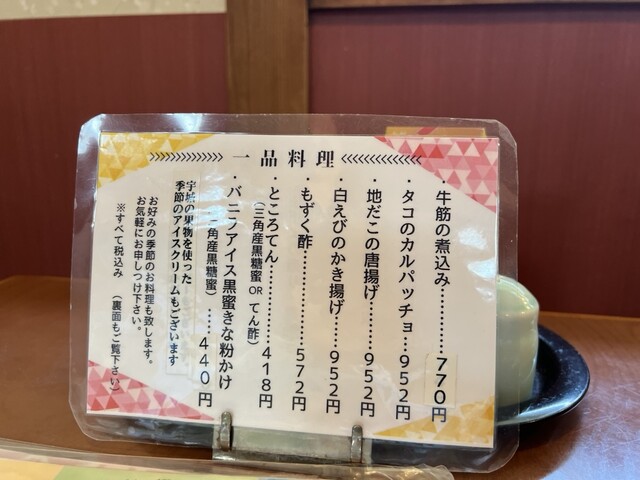 一品料理
・牛筋の煮込み………770円
・タコのカルパッチョ…952円
・地だこの唐揚げ………952円
・白えびのかき揚げ……952円
・もずく酢………………572円
・ところてん……………418円
(三角産黒糖蜜 OR てん酢)
・バニラアイス黒蜜きな粉かけ
三角産黒糖蜜)……440円
宇城の果物を使った
季節のアイスクリームもございます
お好みの季節のお料理も致します。
お気軽にお申しつけ下さい。
※すべて税込み (裏面もご覧下さい)